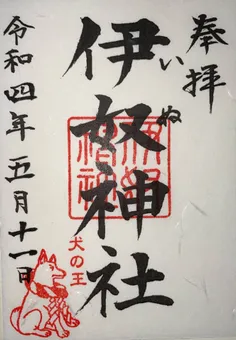 奉拝
いぬ
伊奴神社
犬の王
令和四年五月十一日